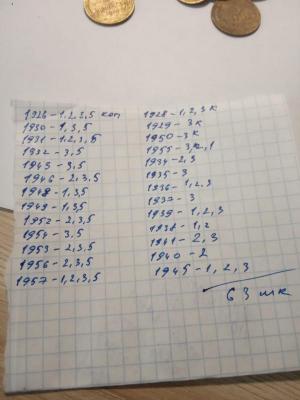 1926-1,2,3,5 коп
1930-1,3,5
1931-1,2,3,5
1932-3,5
1945-3,5
1946-2,3,5
1948-1,3,5
1949-1,3,5
1952-2,3,5
1954-3,5
1953-2,3,5
1956-2,3,5
1957-1,2,3,5
1928-1,2,3 к
1929-3к
1950-3к
1955-3,2,1
1934-2,3
1935-3
1936-1,2,3
1937-3
1939-1,2,3
1938-1,2
1941-2,3
1940-2
1945-1,2,3
63 шк